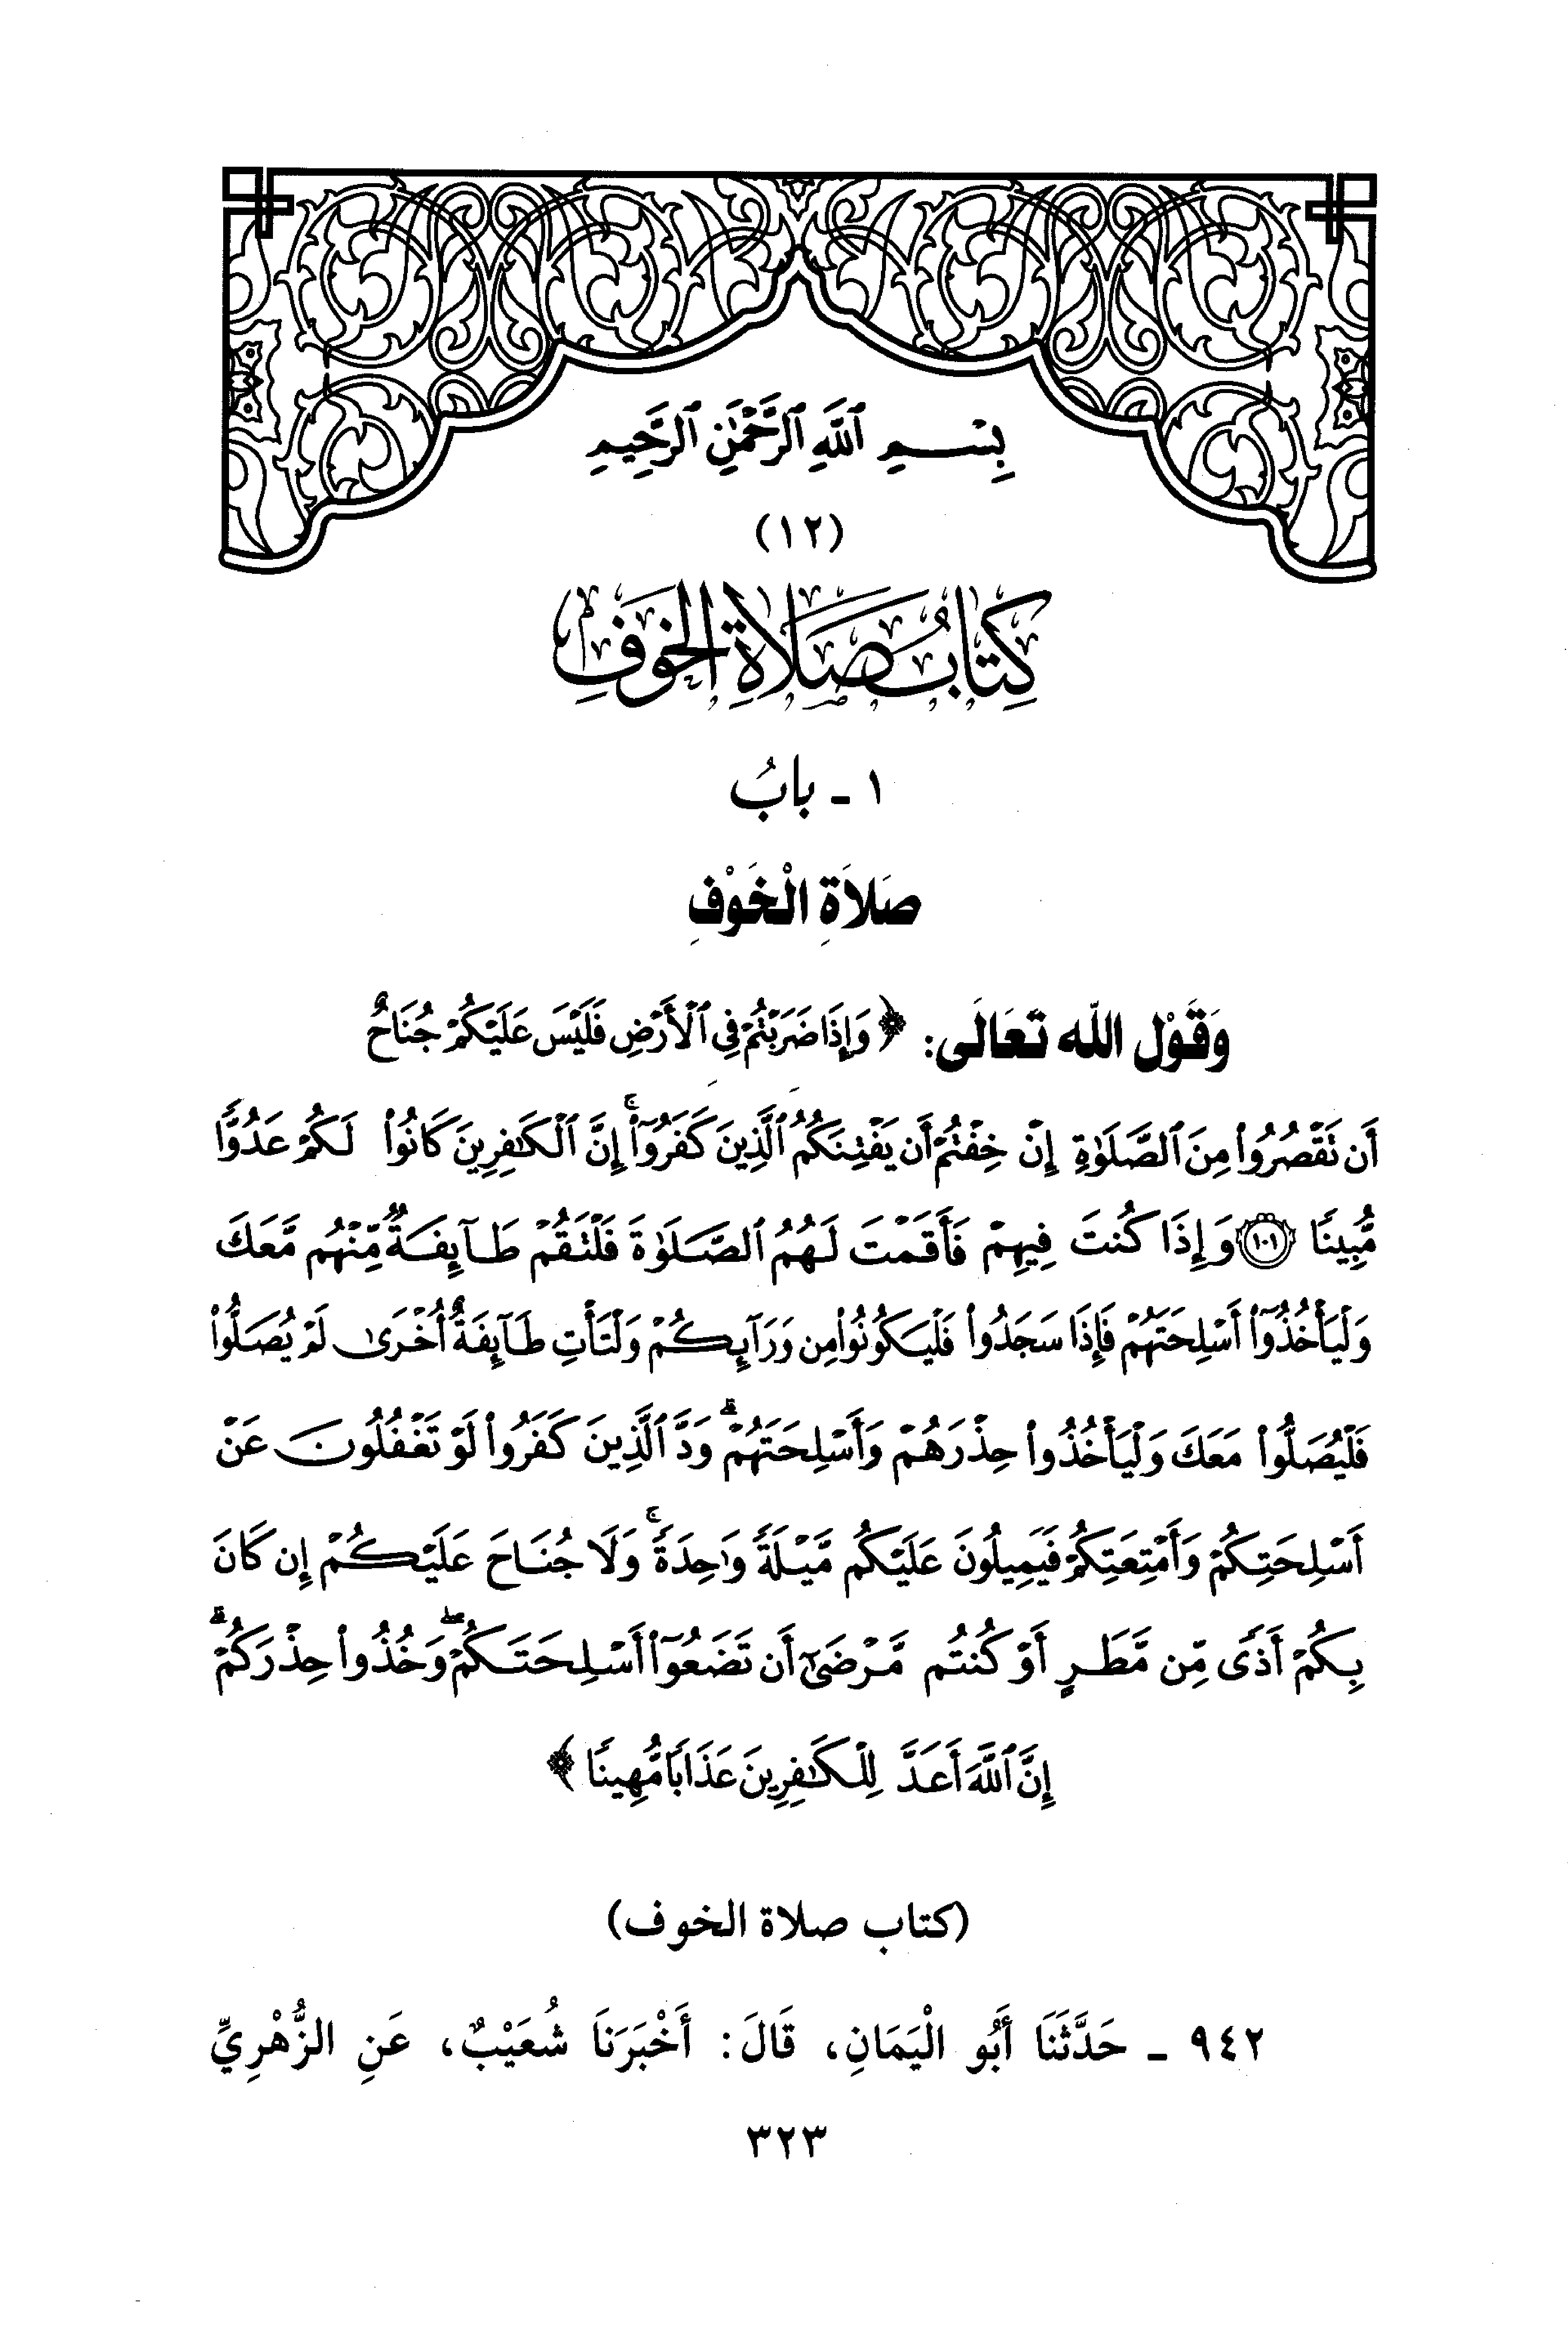 بِسْمِ ٱللَّهِ ٱلرَّحْمَٰنِ ٱلرَّحِيمِ
(١٢)
كِتَابُ صَلَاةِ الخَوْفِ
١ - بابُ
صَلاَةِ الْخَوْفِ
وَقَوْل اللَّه تَعَالَى: ﴿وَإِذَا ضَرَبْتُمْ فِي ٱلْأَرْضِ فَلَيْسَ عَلَيْكُمْ جُنَاحٌ
أَن تَقْصُرُوا۟ مِنَ ٱلصَّلَوٰةِ إِنْ خِفْتُمْ أَن يَفْتِنَكُمُ ٱلَّذِينَ كَفَرُوٓا۟ ۚ إِنَّ ٱلْكَٰفِرِينَ كَانُوا۟ لَكُمْ عَدُوًّا
مُّبِينًا ١٠١ وَإِذَا كُنتَ فِيهِمْ فَأَقَمْتَ لَهُمُ ٱلصَّلَوٰةَ فَلْتَقُمْ طَآئِفَةٌ مِّنْهُم مَّعَكَ
وَلْيَأْخُذُوٓا۟ أَسْلِحَتَهُمْ فَإِذَا سَجَدُوا۟ فَلْيَكُونُوا۟ مِن وَرَآئِكُمْ وَلْتَأْتِ طَآئِفَةٌ أُخْرَىٰ لَمْ يُصَلُّوا۟
فَلْيُصَلُّوا۟ مَعَكَ وَلْيَأْخُذُوا۟ حِذْرَهُمْ وَأَسْلِحَتَهُمْ ۗ وَدَّ ٱلَّذِينَ كَفَرُوا۟ لَوْ تَغْفُلُونَ عَنْ
أَسْلِحَتِكُمْ وَأَمْتِعَتِكُمْ فَيَمِيلُونَ عَلَيْكُم مَّيْلَةً وَٰحِدَةً ۚ وَلَا جُنَاحَ عَلَيْكُمْ إِن كَانَ
بِكُمْ أَذًى مِّن مَّطَرٍ أَوْ كُنتُم مَّرْضَىٰٓ أَن تَضَعُوٓا۟ أَسْلِحَتَكُمْ ۖ وَخُذُوا۟ حِذْرَكُمْ ۗ
إِنَّ ٱللَّهَ أَعَدَّ لِلْكَٰفِرِينَ عَذَابًا مُّهِينًا﴾
(كتاب صلاة الخوف)
٩٤٢ - حَدَّثَنَا أَبُو الْيَمَانِ، قَالَ: أَخْبَرَنَا شُعَيْبٌ، عَنِ الزُّهْرِيِّ
٣٢٣